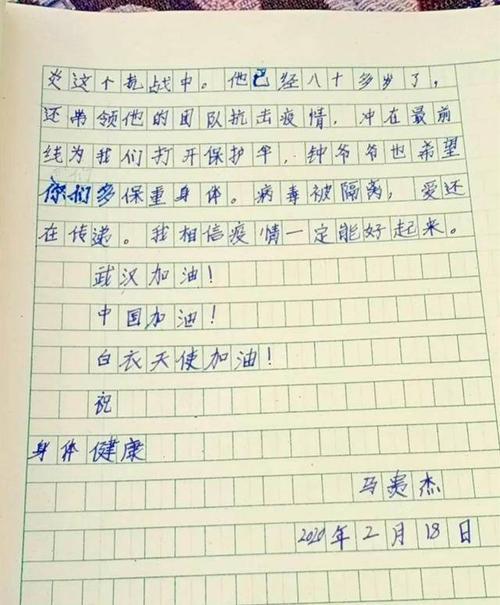 炎这个抗战中。他已经八十多岁了，
还带领他的团队抗击疫情，冲在最前
线为我们打开保护伞，钟爷爷也希望
你们多保重身体。病毒被隔离，爱还
在传递。我相信疫情一定能好起来。
武汉加油！
中国加油！
白衣天使加油！
祝
身体健康
马夷杰
2020年2月18日